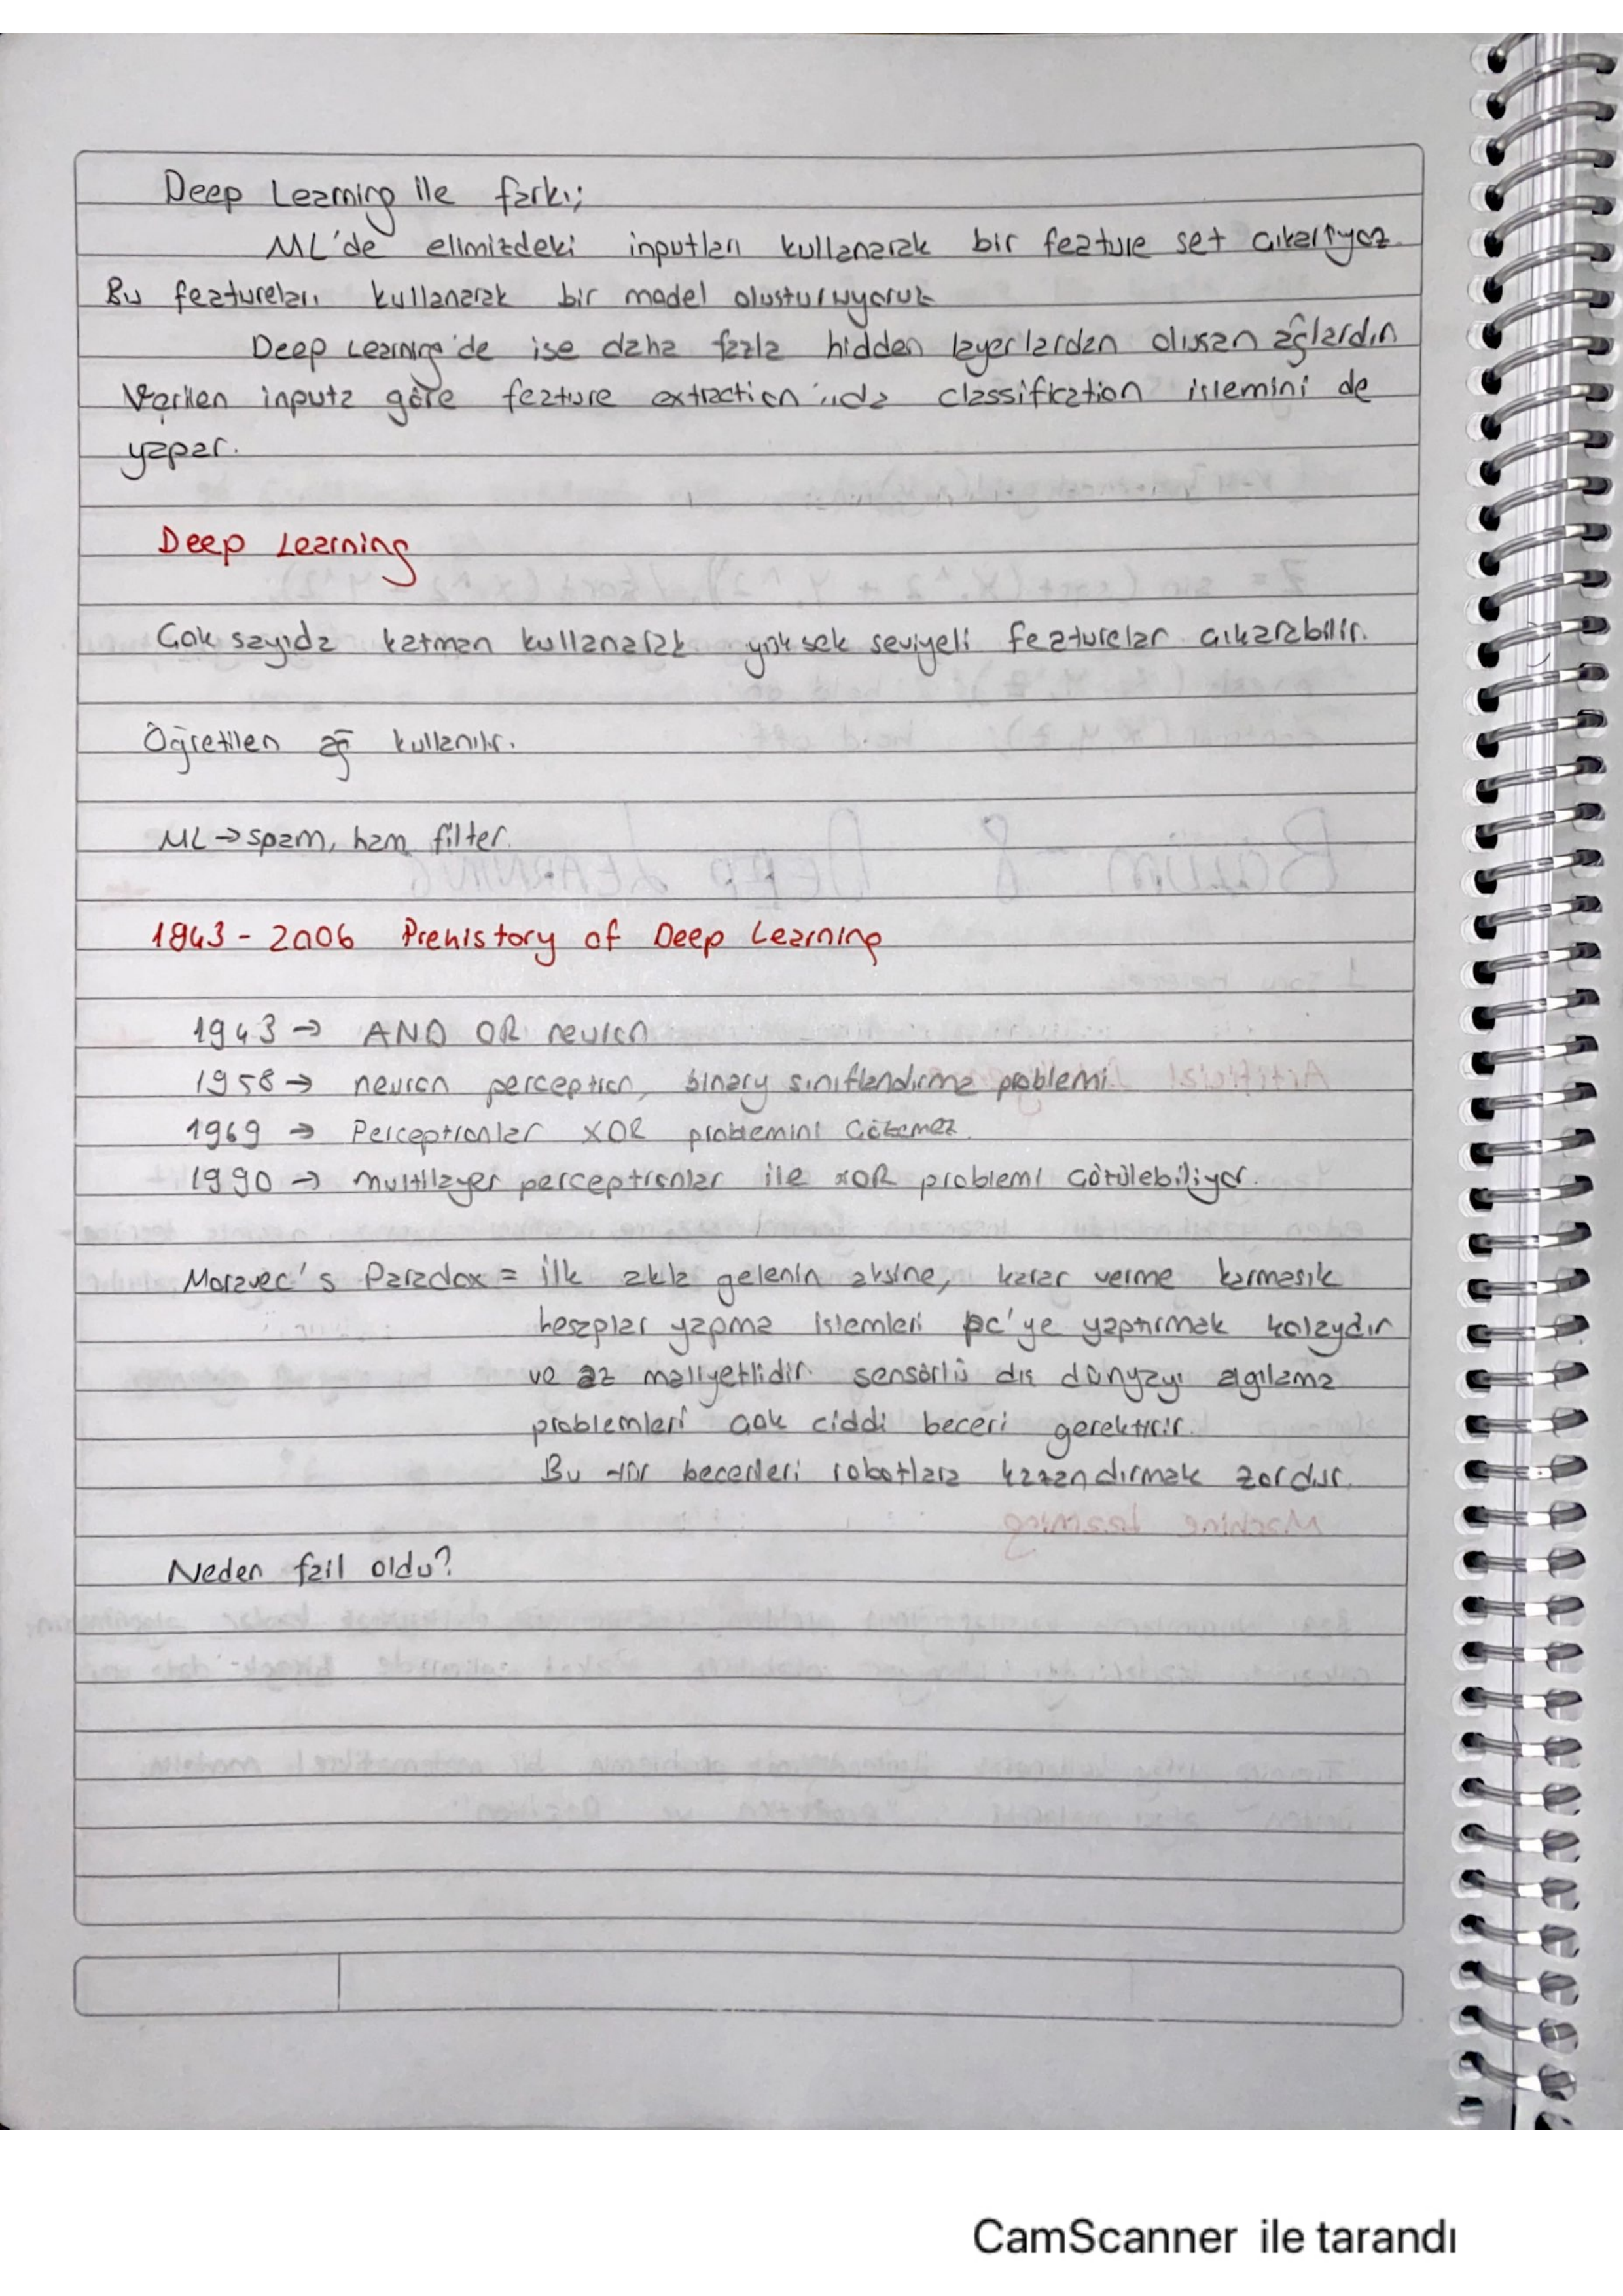 Deep Learning ile farkı;
ML'de elimizdeki inputları kullanarak bir feature set çıkarıyoz.
Bu featureları kullanarak bir model oluşturuyoruz
Deep Learning'de ise daha fazla hidden layerlardan oluşan ağlardır.
Verilen inputa göre feature extraction'ıda classification işlemini de
yapar.
Deep Learning
Çok sayıda katman kullanarak yüksek seviyeli featurelar çıkarabilir.
Öğretilen ağ kullanılır.
ML → spam, ham filter.
1943 - 2006 Prehistory of Deep Learning
1943 → AND OR neuron
1958 → neuron perceptron, binary sınıflandırma problemi
1969 → Perceptronlar XOR problemini çözemez.
1990 → multilayer perceptronlar ile XOR problemi çözülebiliyor.
Moravec's Paradox = ilk akla gelenin aksine, karar verme karmaşık
hesaplar yapma işlemleri pc'ye yaptırmak kolaydır
ve az maliyetlidir. sensörlü dış dünyayı algılama
problemleri çok ciddi beceri gerektirir.
Bu tür becerileri robotlara kazandırmak zordur.
Neden fail oldu?
CamScanner ile tarandı